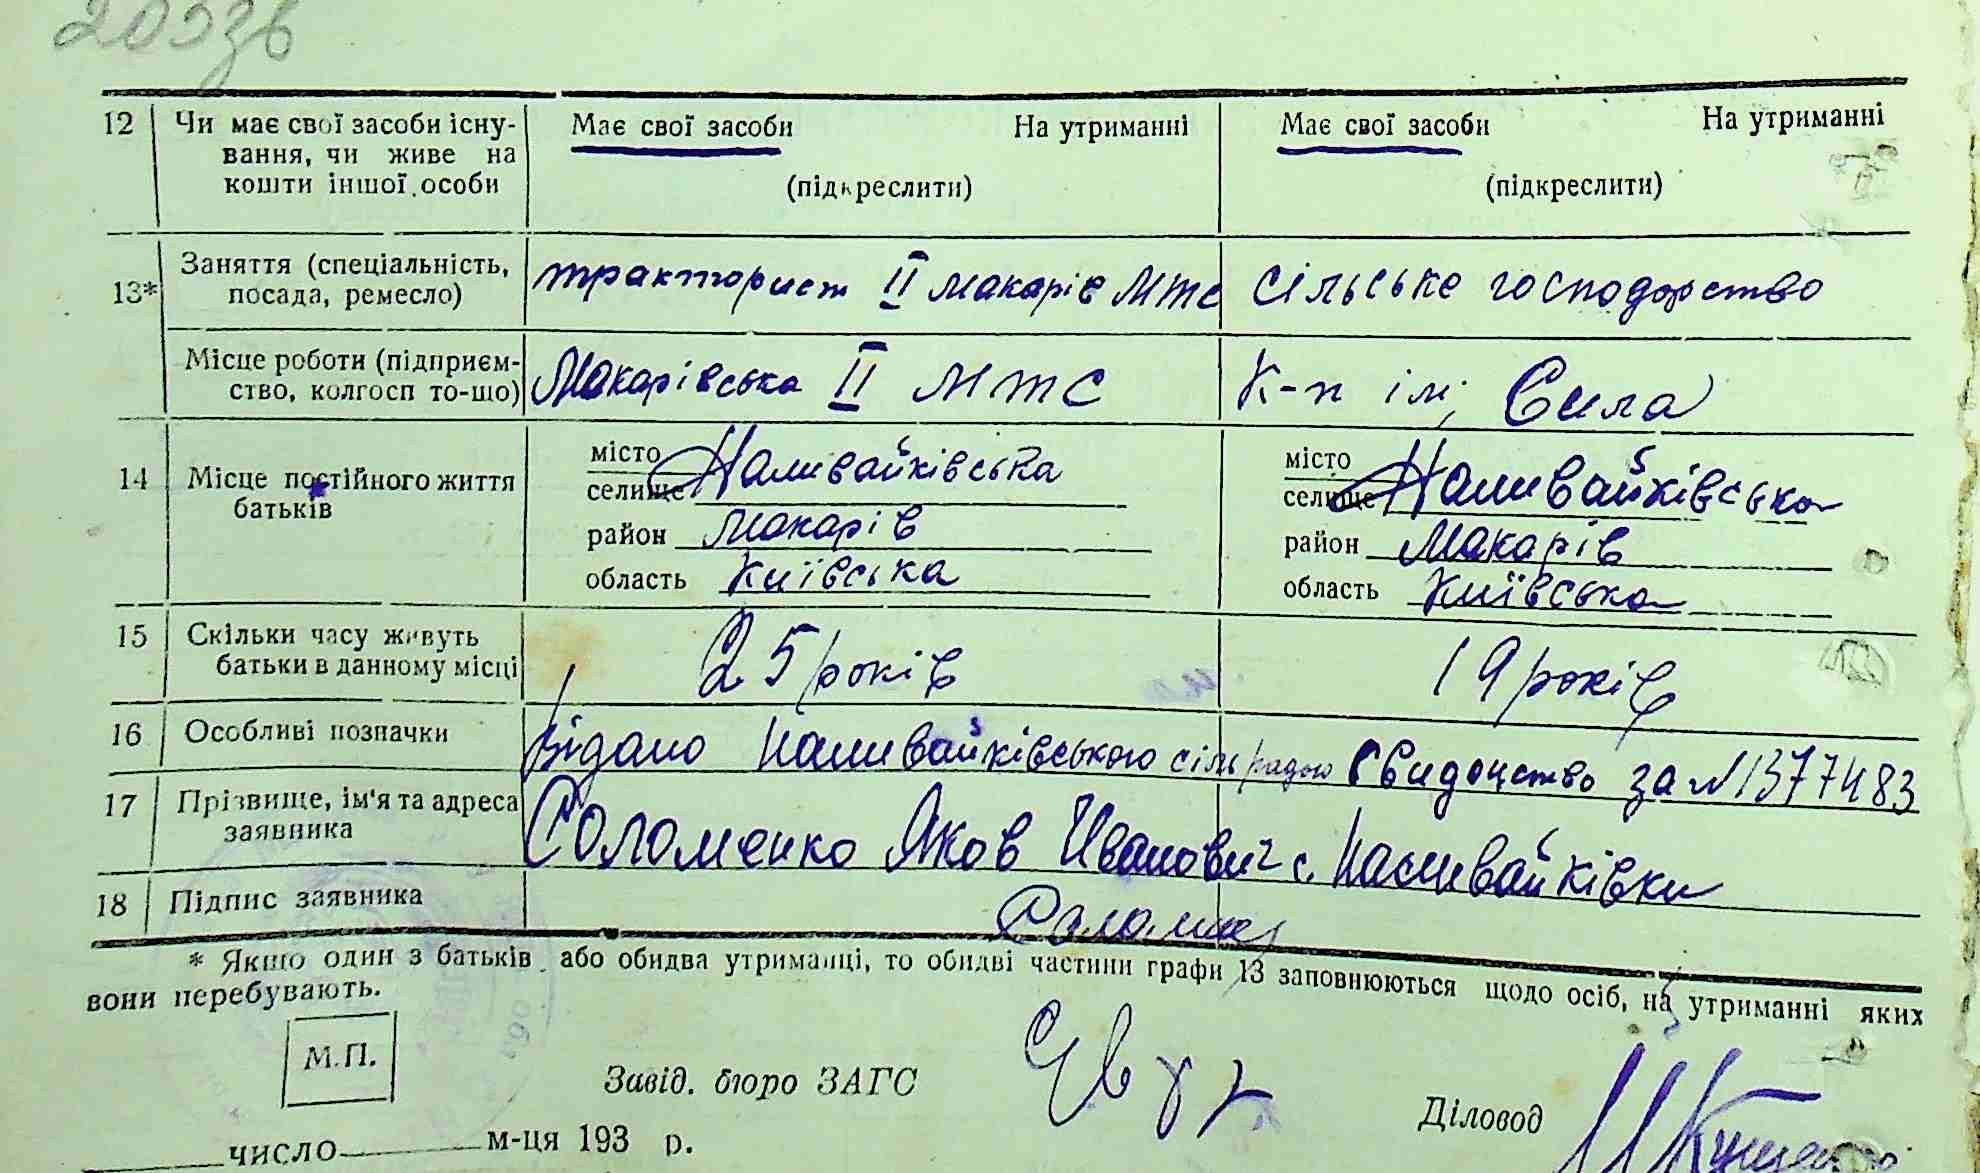 203зв
12 Чи має свої засоби існу- Має свої засоби На утриманні Має свої засоби На утриманні
вання, чи живе на
кошти іншої особи (підкреслити) (підкреслити)
13* Заняття (спеціальність, тракторист II Макарів МТС сільське господарство
посада, ремесло)
Місце роботи (підприєм- Макарівська II МТС К-п ім; Сила
ство, колгосп то-що)
14 Місце постійного життя місто Наливайківська місто Наливайківська
батьків селище селище
район Макарів район Макарів
область Київська область Київська
15 Скільки часу живуть 25 років 19 років
батьки в данному місці
16 Особливі позначки Відано Наливайківського сільрадою Свидоцство за №1377483
17 Прізвище, ім'я та адреса Соломенко Яков Иванович с. Наливайківки
заявника
18 Підпис заявника
* Якщо один з батьків або обидва утриманці, то обидві частини графи 13 заповнюються щодо осіб, на утриманні яких
вони перебувають.
М.П.
Завід. бюро ЗАГС Діловод
число м-ця 193 р.